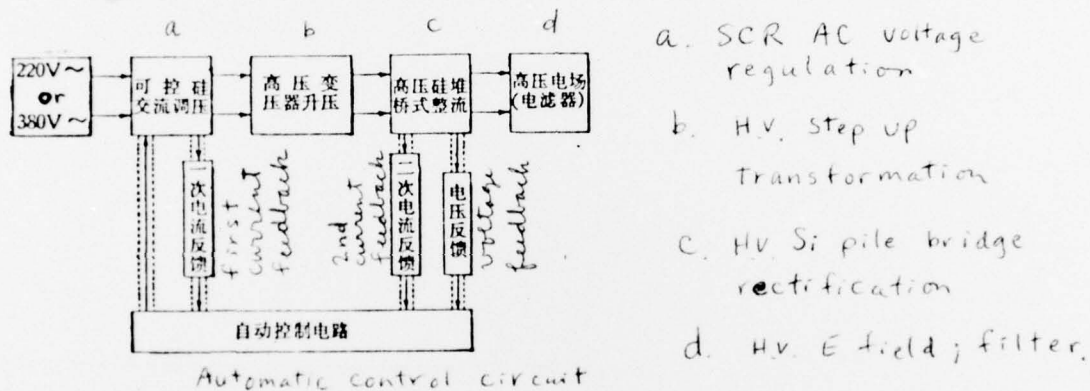 a
b
c
d
220V～
or
380V～
可控硅
交流调压
高压变
压器升压
高压硅堆
桥式整流
高压电场
(电滤器)
一次电流反馈
first
current
feedback
2nd
current
feedback
二次电流反馈
电压反馈
voltage
feedback
自动控制电路
Automatic control circuit
a. SCR AC voltage
regulation
b. H.V. Step up
transformation
c. HV Si pile bridge
rectification
d. H.V. E field; filter.